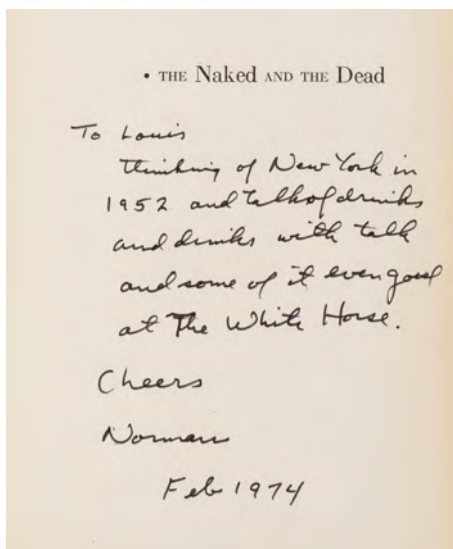 • THE Naked AND THE Dead
To Louis
thinking of New York in
1952 and talk of drinks
and drinks with talk
and some of it even good
at The White Horse.
Cheers
Norman
Feb 1974